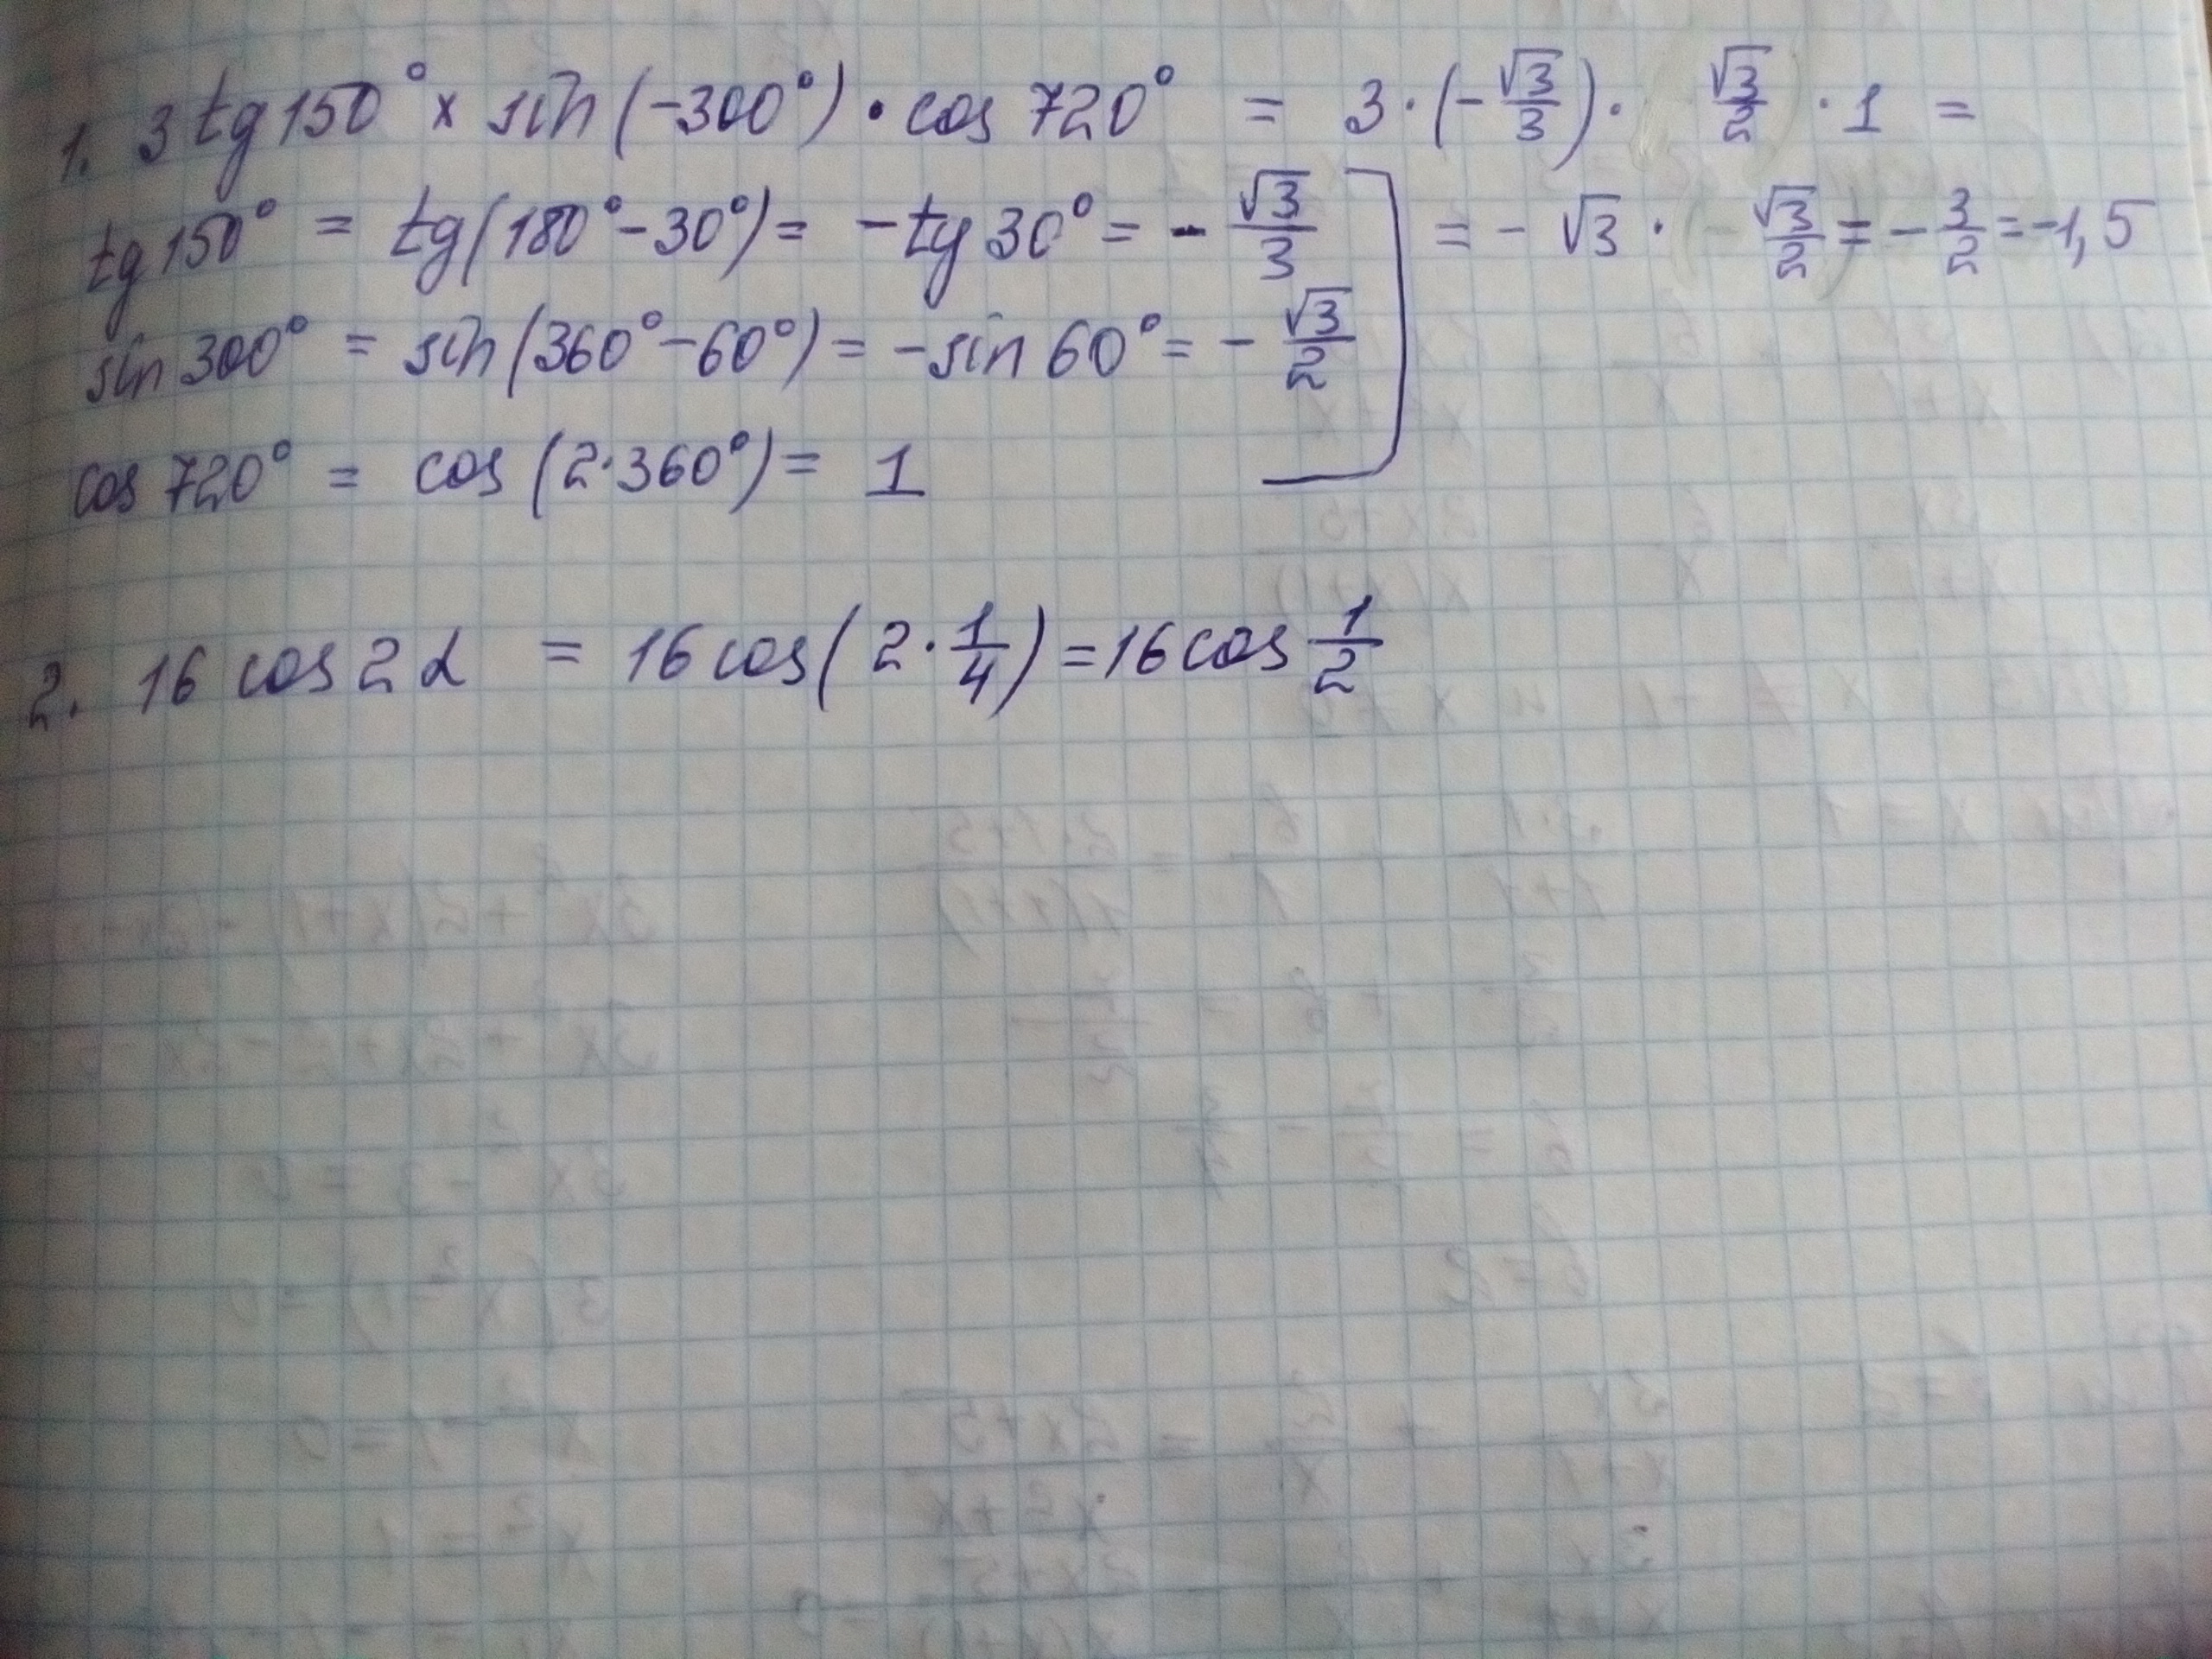 1. 3 tg 150° × sin(-300°) · cos 720° = 3 · (-√3/3) · √3/2 · 1 =
tg 150° = tg(180° - 30°) = -tg 30° = -√3/3 ] = -√3 · √3/2 = -3/2 = -1,5
sin 300° = sin(360° - 60°) = -sin 60° = -√3/2
cos 720° = cos(2·360°) = 1
2. 16 cos 2α = 16 cos(2·1/4) = 16 cos 1/2